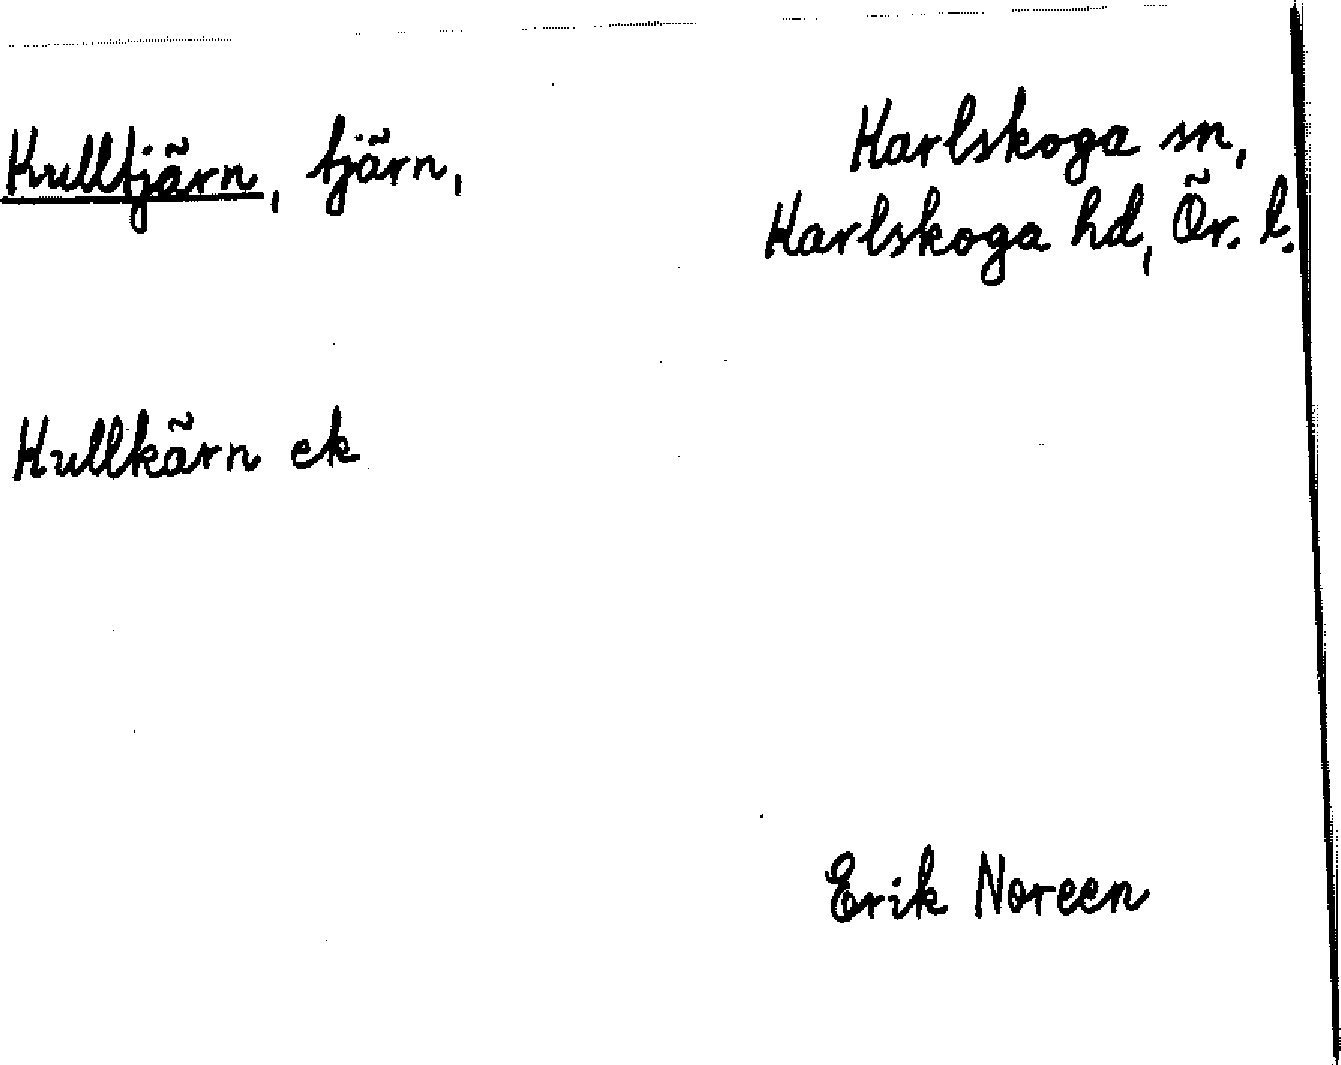 Kulltjärn, tjärn,
Karlskoga sn,
Karlskoga hd, Ör. l.
Kullkärn ek
Erik Noreen